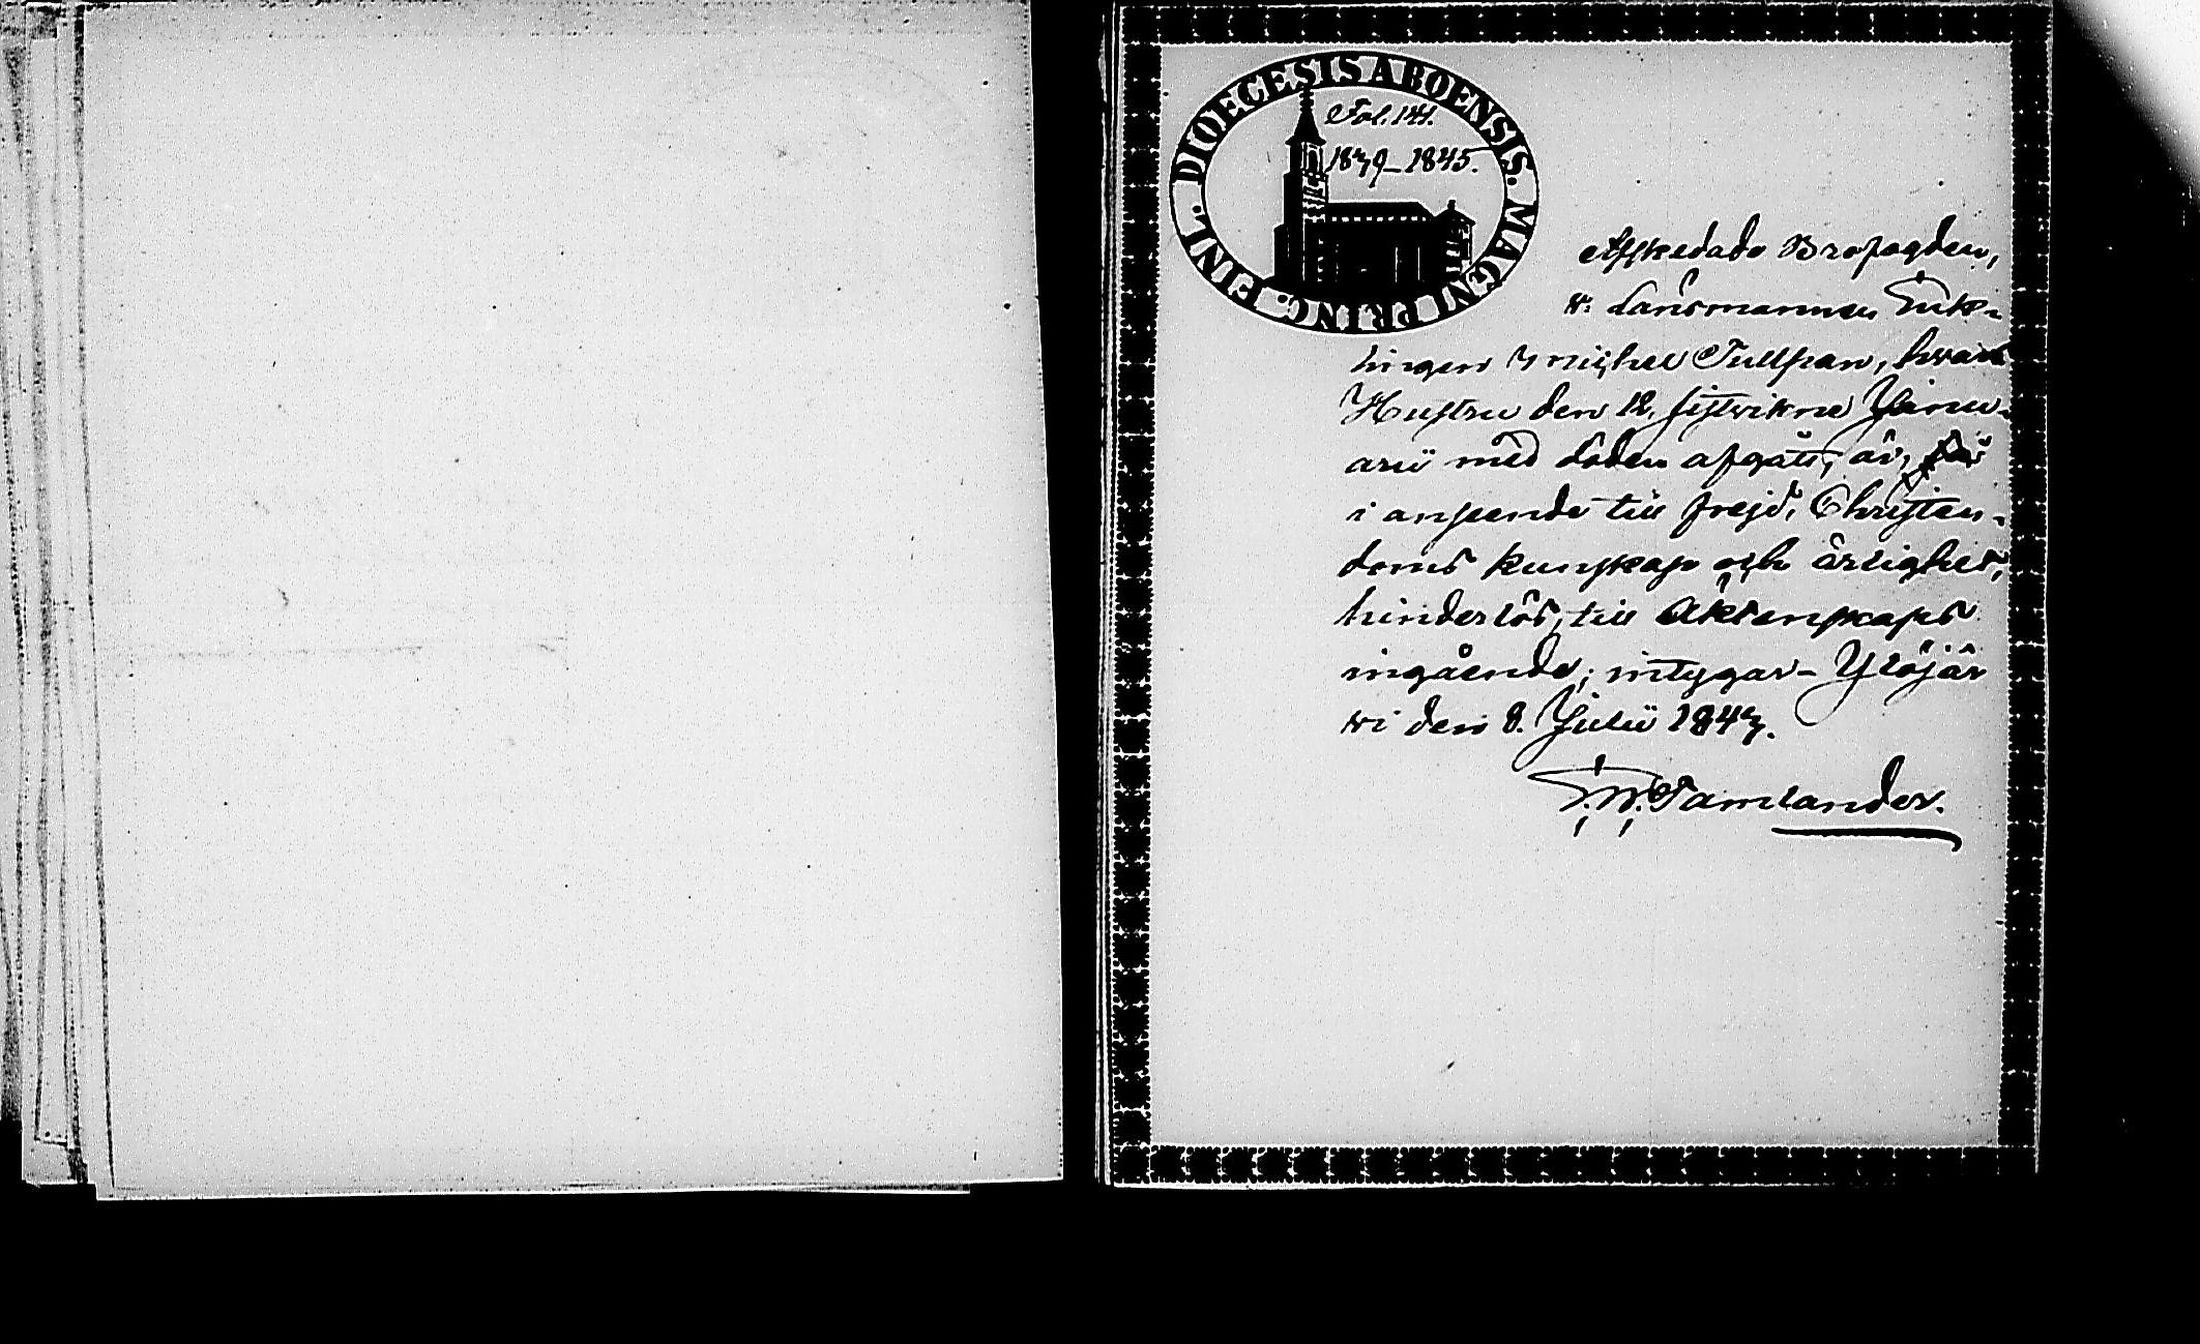 DIOECESIS ABOENSIS. MAGNI PRINC. FINL.
Fol. 144.
1839–1845.
Afskedade Brofogden,
v. Länsmannen Enk-
lingen Michel Tullpan, hvars
Hustru den 12. sistvikne Janu-
arii med döden afgått, är,
i anseende till frejd, Christen-
doms kunskap och ärlighet,
hinderlös, till Äktenskaps
ingående; intygar – Ylöjär
vi den 8. Julii 1843.
Tamlander.